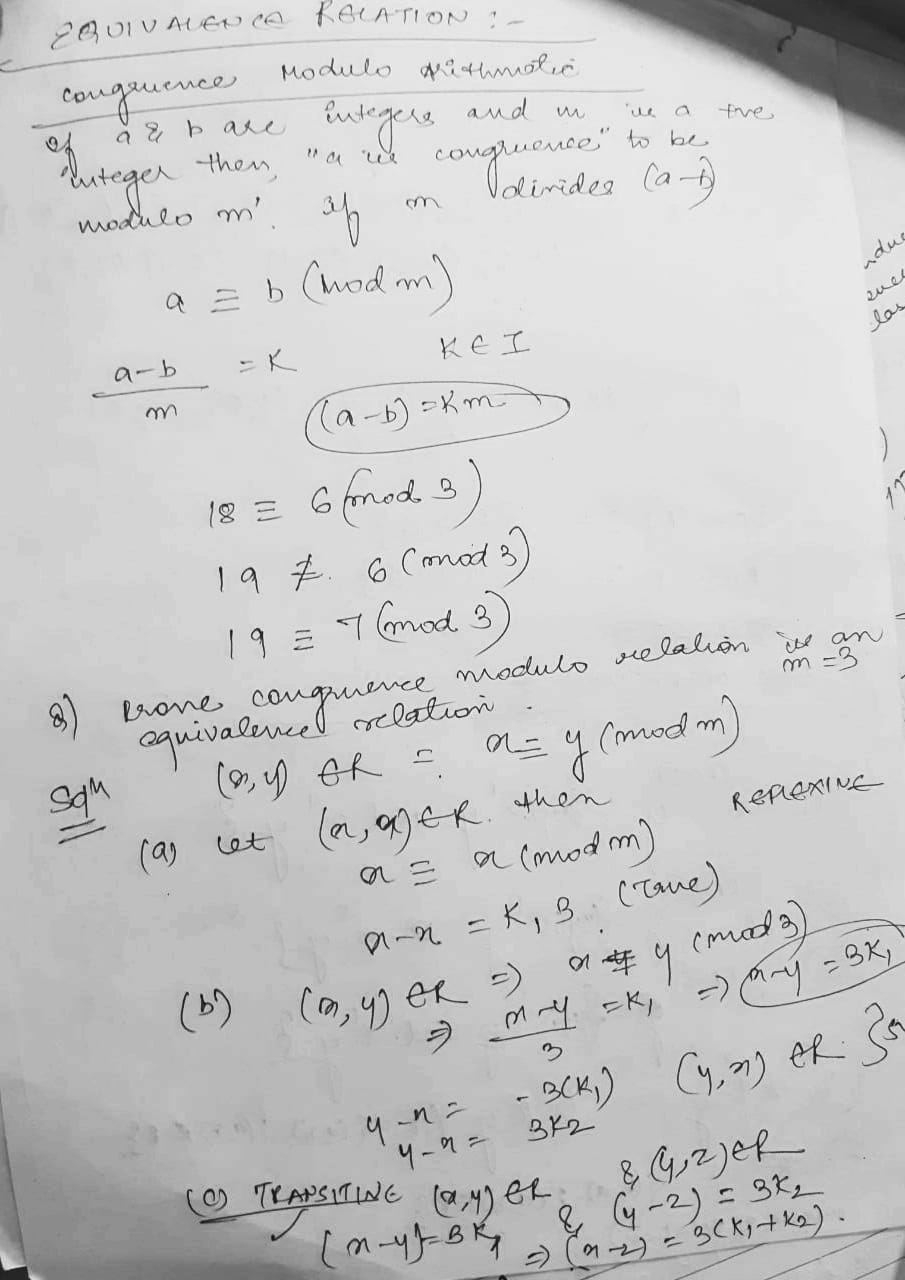 EQUIVALENCE RELATION :-
Congruence Modulo Arithmatic
If a & b are integers and m is a +ve
integer then, "a is congruence" to be
modulo m'. if m divides (a-b)
a ≡ b (mod m)
a-b/m = K K ∈ I
(a-b) = Km
18 ≡ 6 (mod 3)
19 ≢ 6 (mod 3)
19 ≡ 7 (mod 3)
Q) Prove congruence modulo relation is an
equivalence relation. m = 3
Solⁿ (x, y) ∈ R = x ≡ y (mod m)
(a) Let (x, x) ∈ R. then REFLEXIVE
x ≡ x (mod m)
x-x = K, 3. (True)
(b) (x, y) ∈ R ⇒ x ≡ y (mod 3)
⇒ x-y/3 = K₁ ⇒ x-y = 3K₁
y-x = -3(K₁) (y, x) ∈ R. }
y-x = 3K2
(c) TRANSITIVE (x, y) ∈ R & (y, z) ∈ R
(x-y) = 3K₁ & (y-z) = 3K₂
⇒ (x-z) = 3(K₁+K₂).